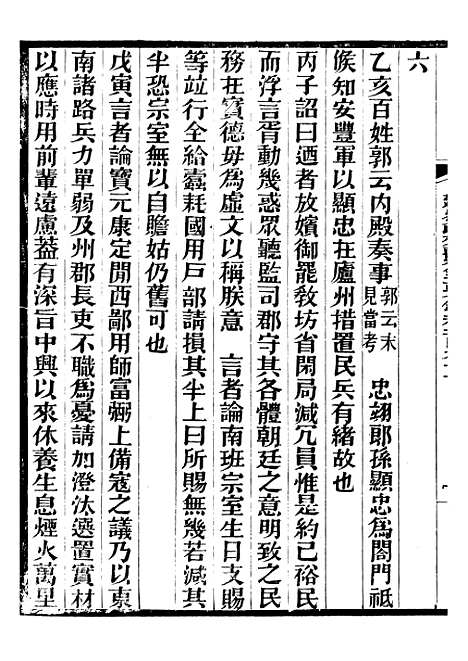 六
乙亥百姓郭云内殿奏事郭云未見當考　忠翊郎孫顯忠爲閤門祗
候知安豐軍以顯忠在廬州措置民兵有緒故也
丙子詔曰迺者放嬪御罷敎坊省閑局減冗員惟是約己裕民
而浮言胥動幾惑眾聽監司郡守其各體朝廷之意明致之民
務在實德毋爲虛文以稱朕意　言者論南班宗室生日支賜
等竝行全給蠹耗國用戸部請損其半上曰所賜無幾若減其
半恐宗室無以自贍姑仍舊可也
戊寅言者論寶元康定閒西鄙用師富弼上備寇之議乃以東
南諸路兵力單弱及州郡長吏不職爲憂請加澄汰選置實材
以應時用前輩遠慮葢有深旨中興以來休養生息煙火萬里